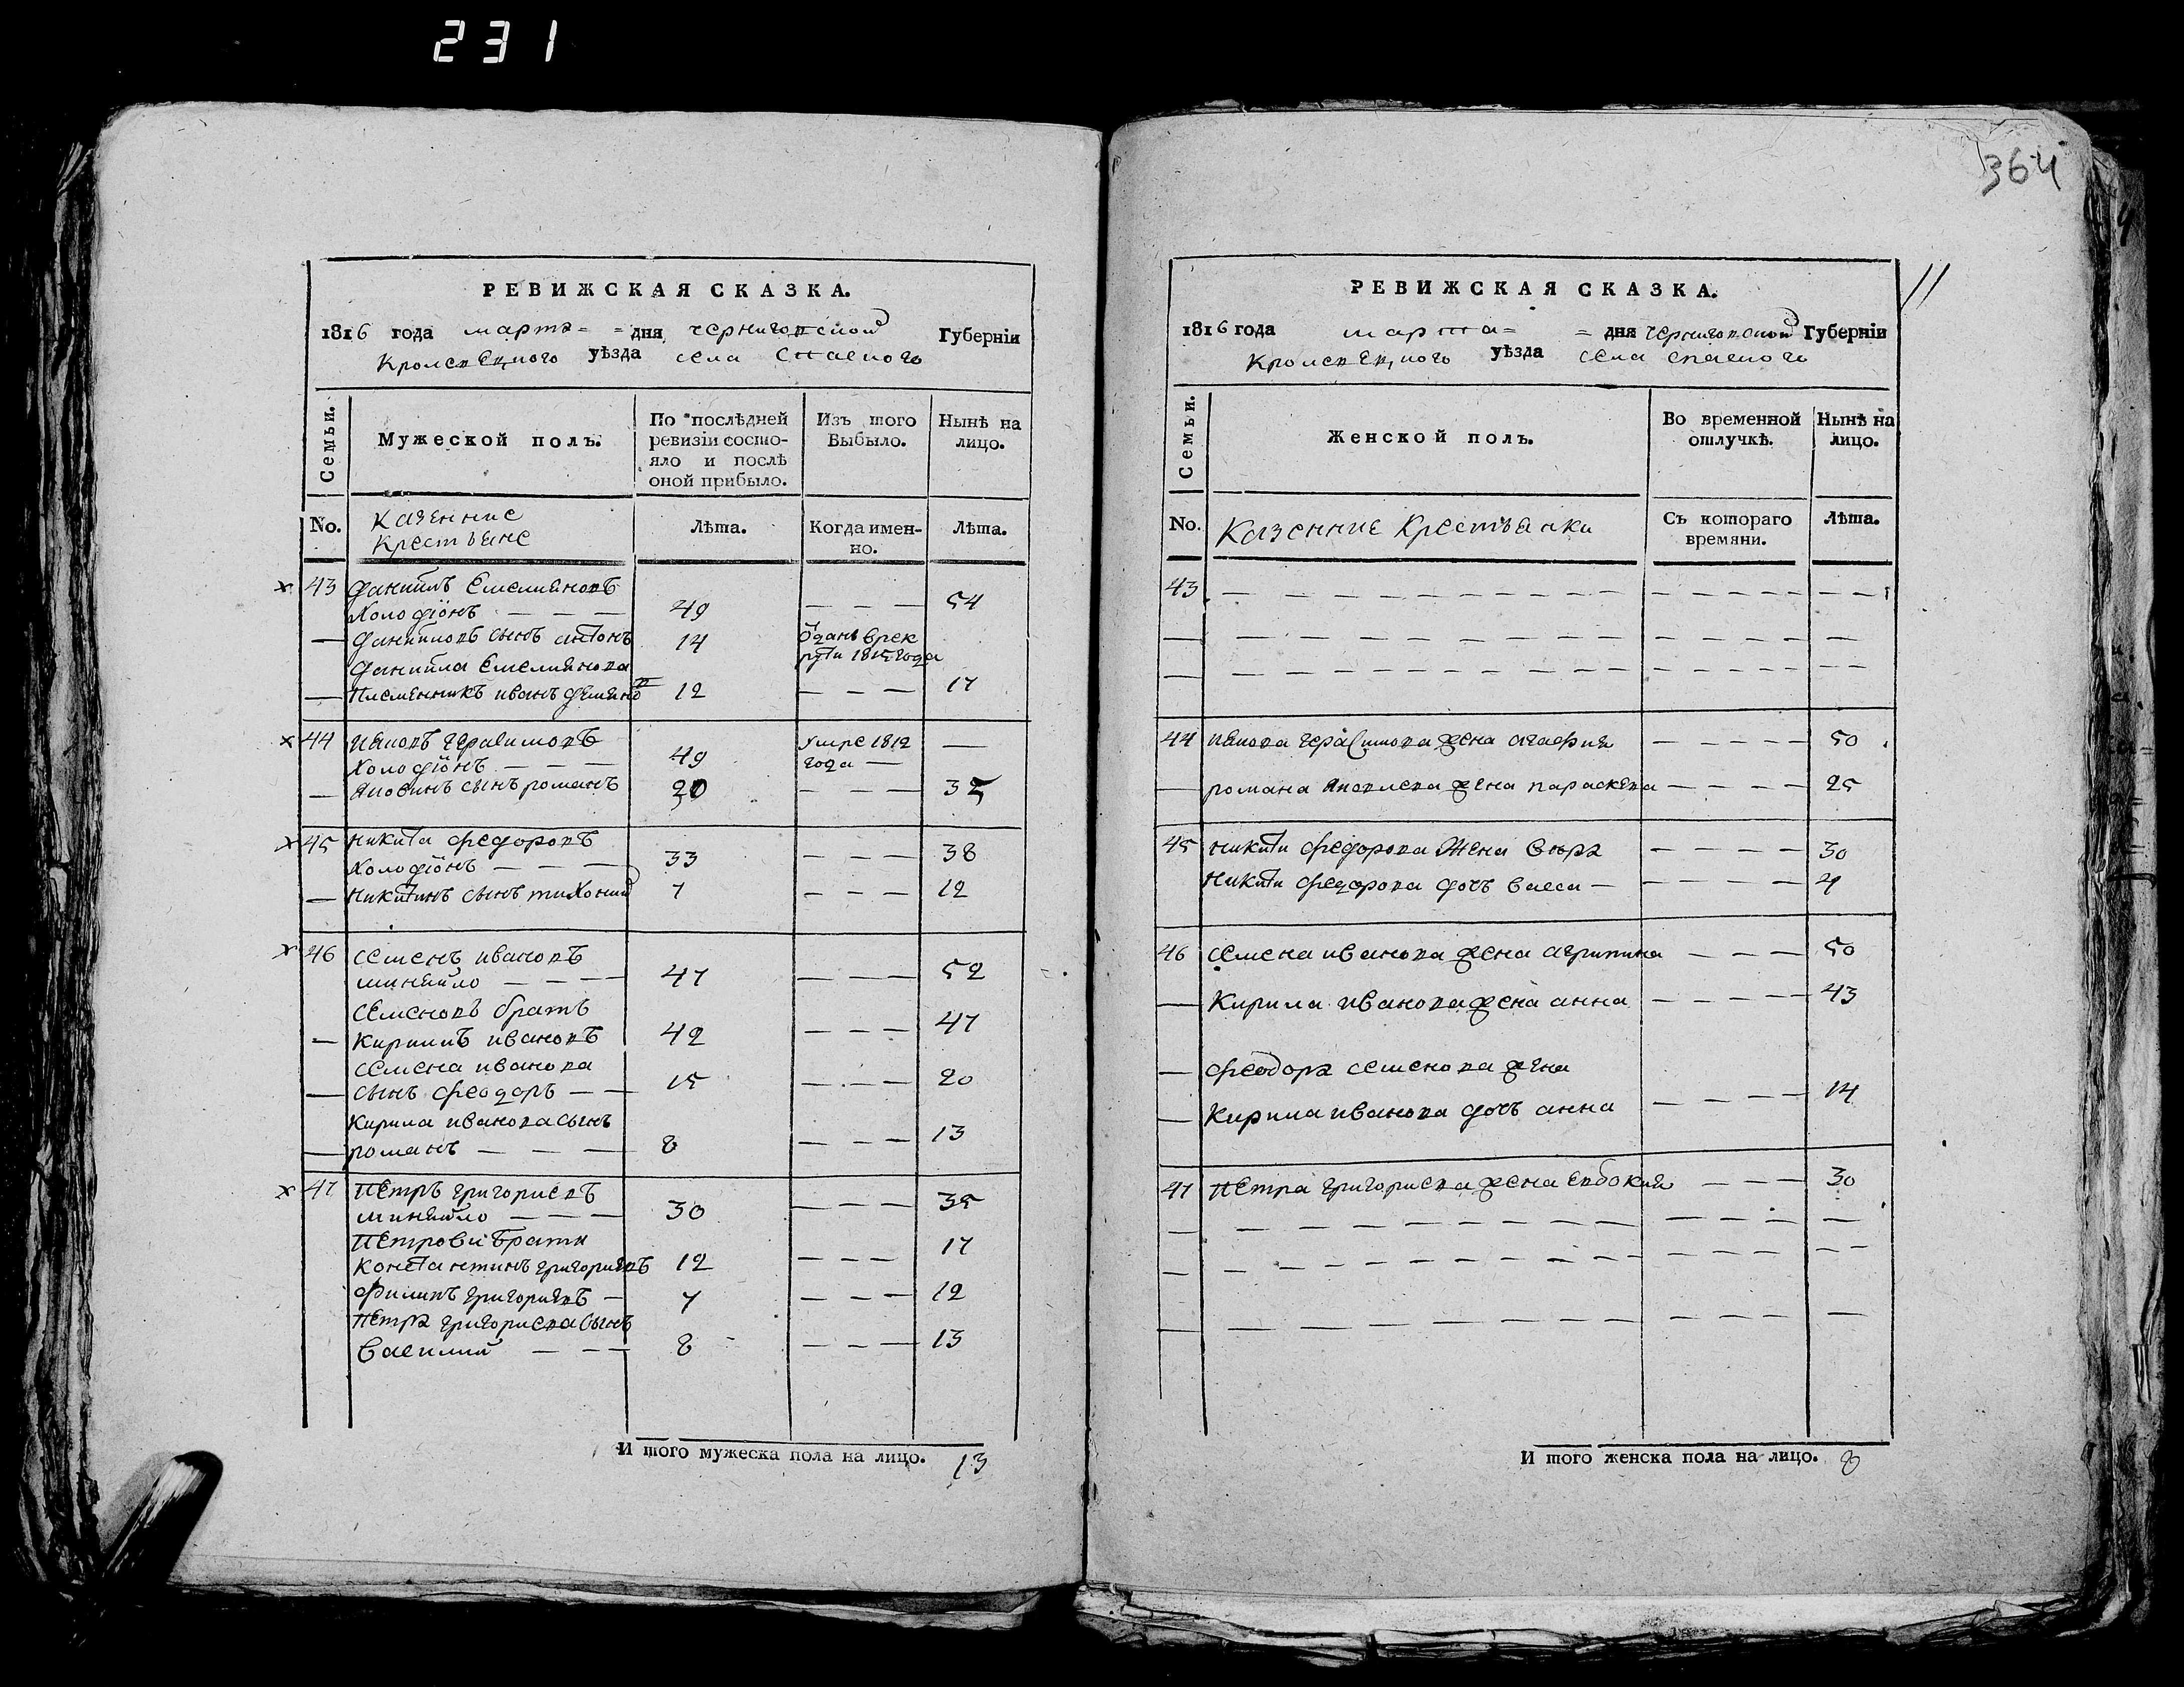 231
364
11
РЕВИЖСКАЯ СКАЗКА.
1816 года марта = = дня черниговской Губерніи
Кролевецкого уѣзда села Спаского
Семьи.
Мужеской полъ.
По послѣдней ревизіи состо-
яло и послѣ
оной прибыло.
Изъ того
Выбыло.
Нынѣ на
лицо.
No.
Казенние
Крестьяне
Лѣта.
Когда имен-
но.
Лѣта.
43 Даниилъ Емелияновъ
Холодіонъ — — — 49 — — — 54
— Даниловъ сынъ антонъ 14 Ѿданъ врек
руты 1815 года
Данийла Емелиянова
— Племенникъ иванъ демяновъ 12 — — — 17
44 Яковъ герасимовъ
Холодіонъ — — — 49 умре 1812
года — —
— Яковинъ сынъ романъ 20 — — — 35
45 Никита федоровъ
Холодіонъ — — — 33 — — — 38
— Никитинъ сынъ тихоний 7 — — — 12
46 Семенъ ивановъ
миняйло — — — 47 — — — 52
Семеновъ братъ
— Кирилъ ивановъ 42 — — — 47
Семена иванова
— сынъ феодоръ — — 15 — — — 20
Кирила иванова сынъ
— романъ — — — 8 — — — 13
47 Петръ григориевъ
миняйло — — — 30 — — — 35
Петрови брати
Константинъ григориевъ 12 — — — 17
Филипъ григориевъ — 7 — — — 12
Петра григориева сынъ
Василий — — — 8 — — — 13
И того мужеска пола на лицо. 13
РЕВИЖСКАЯ СКАЗКА.
1816 года марта = = дня черниговской Губерніи
Кролевецкого уѣзда села спаского
Семьи.
Женской полъ.
Во временной
отлучкѣ.
Нынѣ на
лицо.
No.
Казенние Крестьянки
Съ котораго
времяни.
Лѣта.
43
44 Якова герасимова жена агафия — — — — 50
— романа яковлева жена параскева — — — — 25
45 Никити федорова жена вѣра — — — — 30
Никити федорова дочъ васса — — — — — 4
46 Семена иванова жена агрипина — — — 50
— Кирила иванова жена анна — — — — 43
— феодора семенова жена
— Кирила иванова дочъ анна — — — — 14
47 Петра григориева жена евдокия — — — 30
И того женска пола на лицо. 8